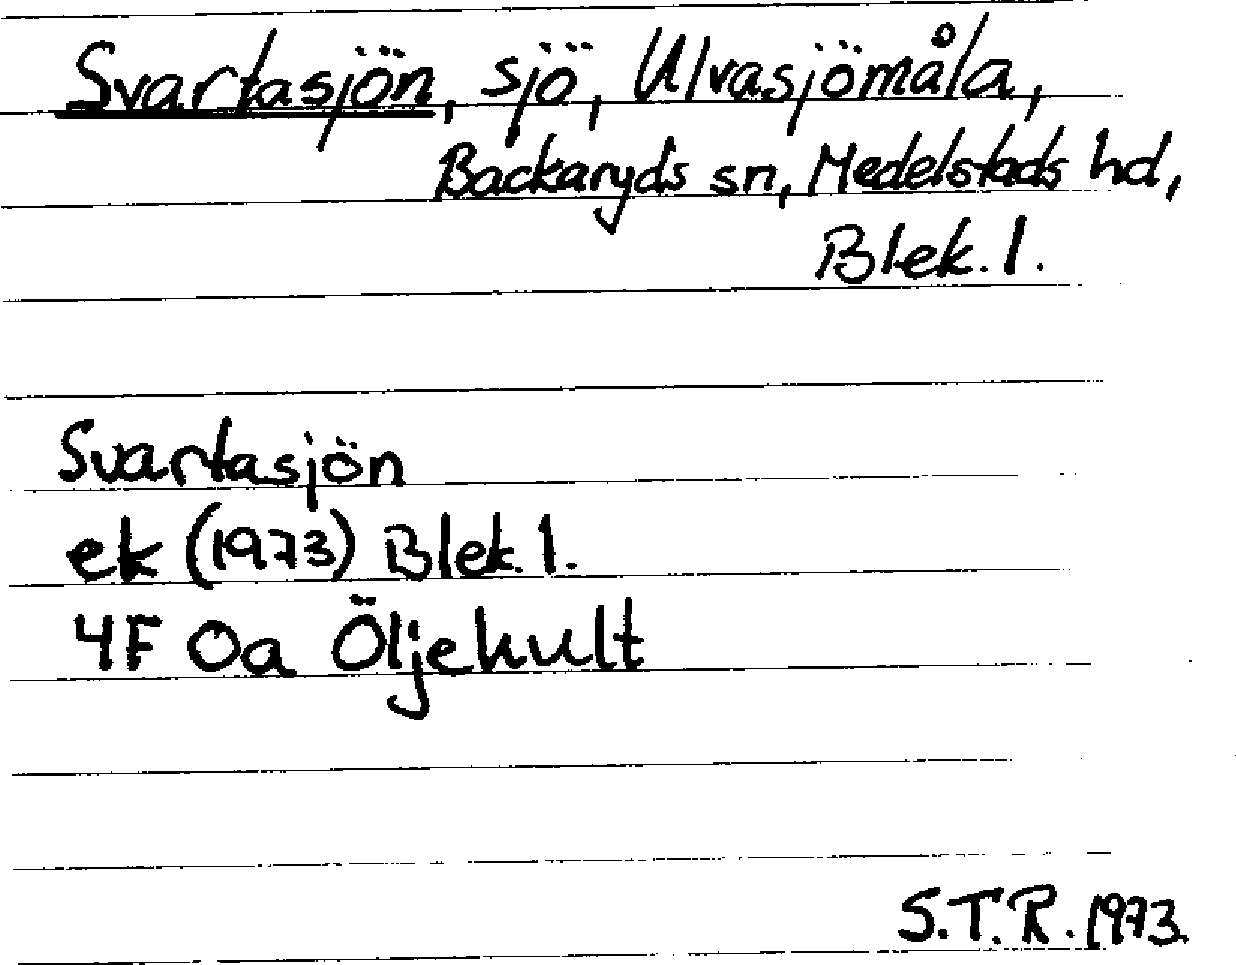 Svartasjön, sjö, Ulvasjömåla,
Backaryds sn, Medelstads hd,
Blek. l.
Svartasjön
ek (1973) Blek. l.
4F 0a Öljehult
S.T.R. 1973.